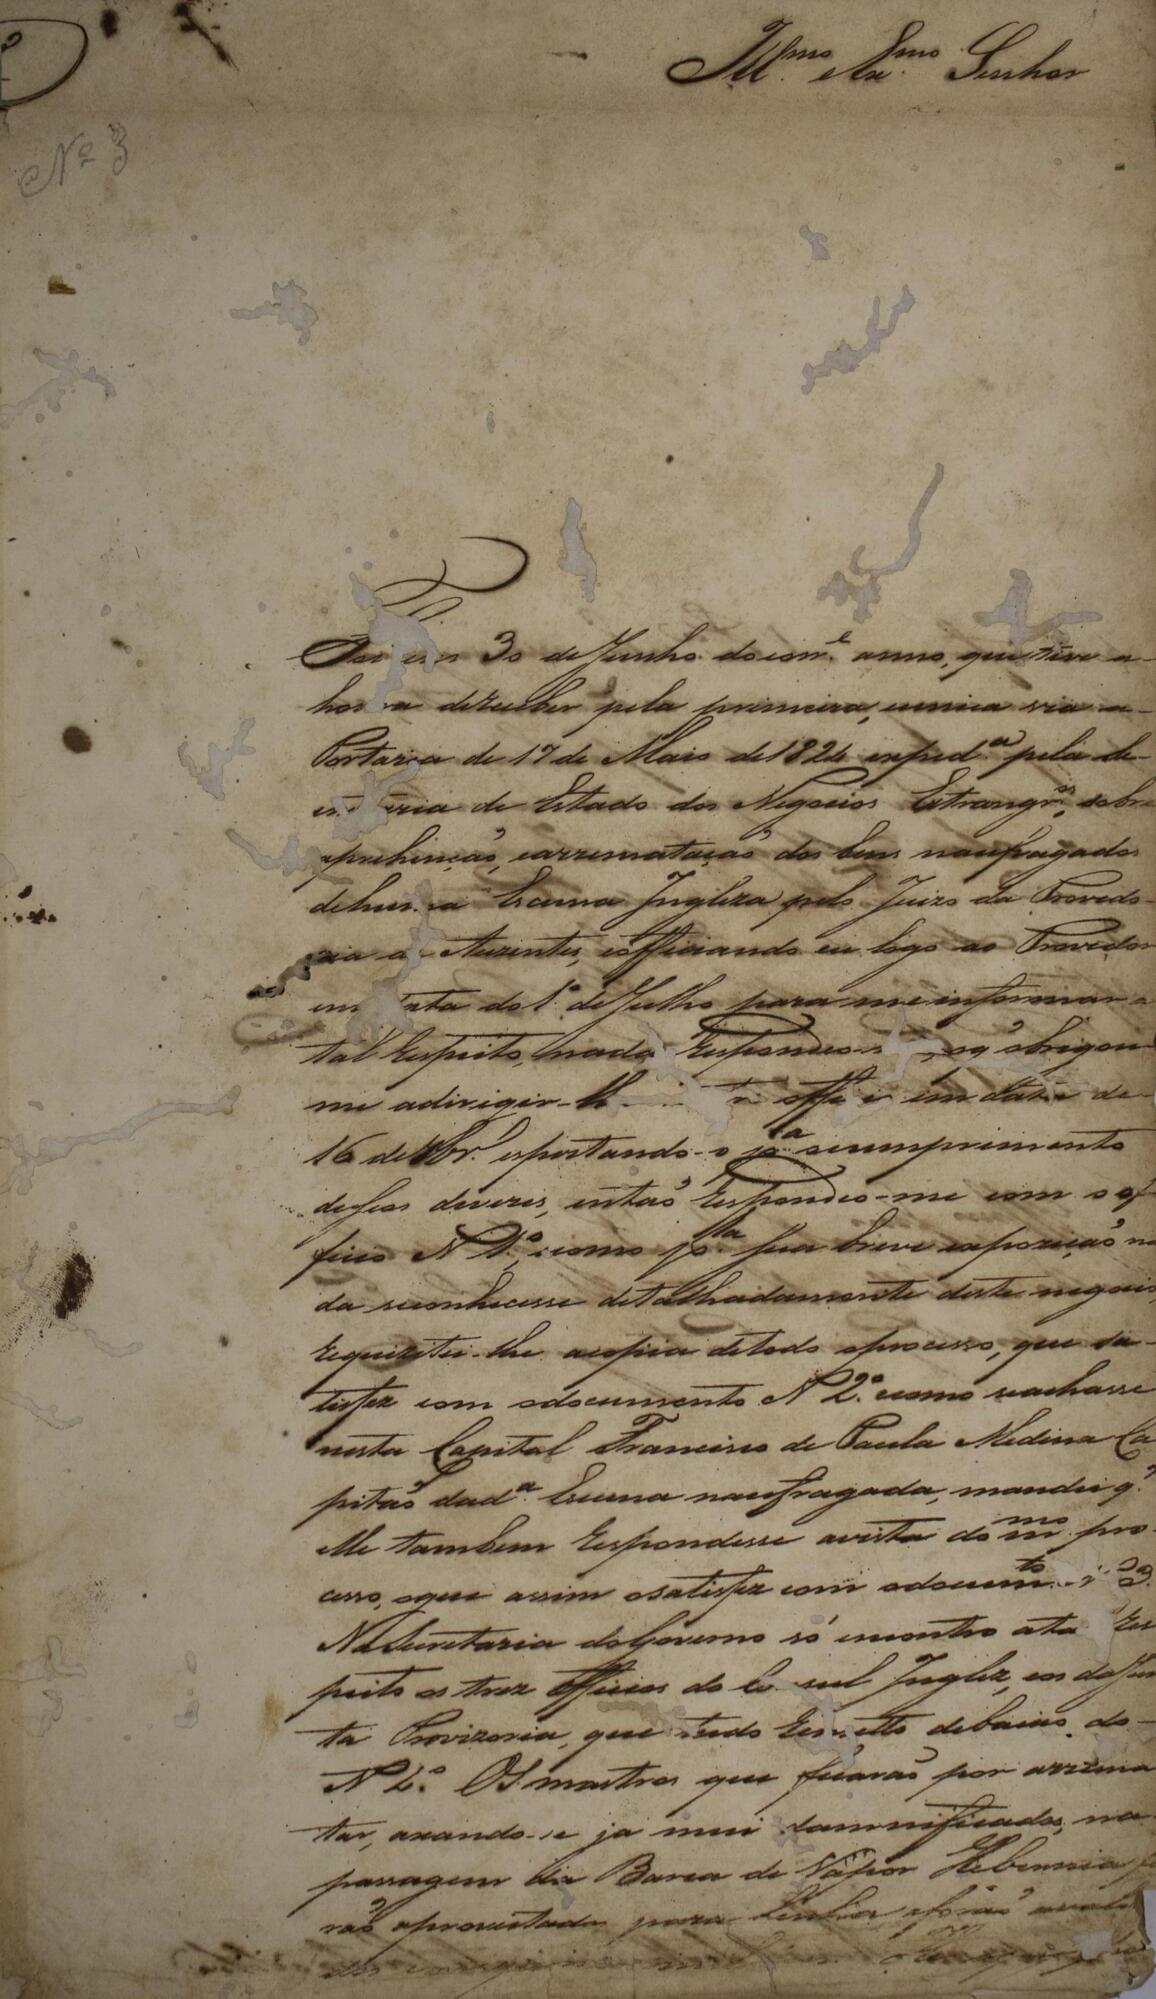 Ill.mo e Ex.mo Senhor
Nº 3
Foi em 30 de Junho do corr.e anno, que tive a
honra de receber pela primeira, e unica via a
Portaria de 17 de Maio de 1824 exped.a pela Se-
cretaria de Estado dos Negocios Estrangr.os, sobre
aprehenção, e arrematação dos bens naufragados
de huma Escuna Ingleza pelo Juizo da Provedo-
ria de Auzentes, e officiando eu logo ao Provedor
em data do 1º de Julho para me informar a
tal respeito, nada respondeo, o q' obrigou
me a dirigir-lh officio em data de
16 de espertando-o p.a o cumprimento
desses deveres, então respondeo-me com o of
ficio N 1º, e como p.r sua breve expozição na
da se conhecesse detalhadamente deste negocio,
requizitei-lhe a copia de todo o processo, que sa-
tisfez com o documento N 2º e como se achasse
nesta Capital Francisco de Paula Medina Ca
pitão da d.a Escuna naufragada, mandei q'
elle tambem respondesse a vista do m.mo pro-
cesso, o que assim o satisfez com o docum.to 3º.
Na Secretaria do Governo só encontro a tal res
peito os trez officios do Consul Inglez, e os da Jun
ta Provizoria, que tudo remetto debaixo do
N 4º. Os mastros que ficarão por arrema
tar, axando-se ja mui damnificados, na
passagem da Barca de Vapor Hibernia fo
rão aproveitados para lenha e forão avalia